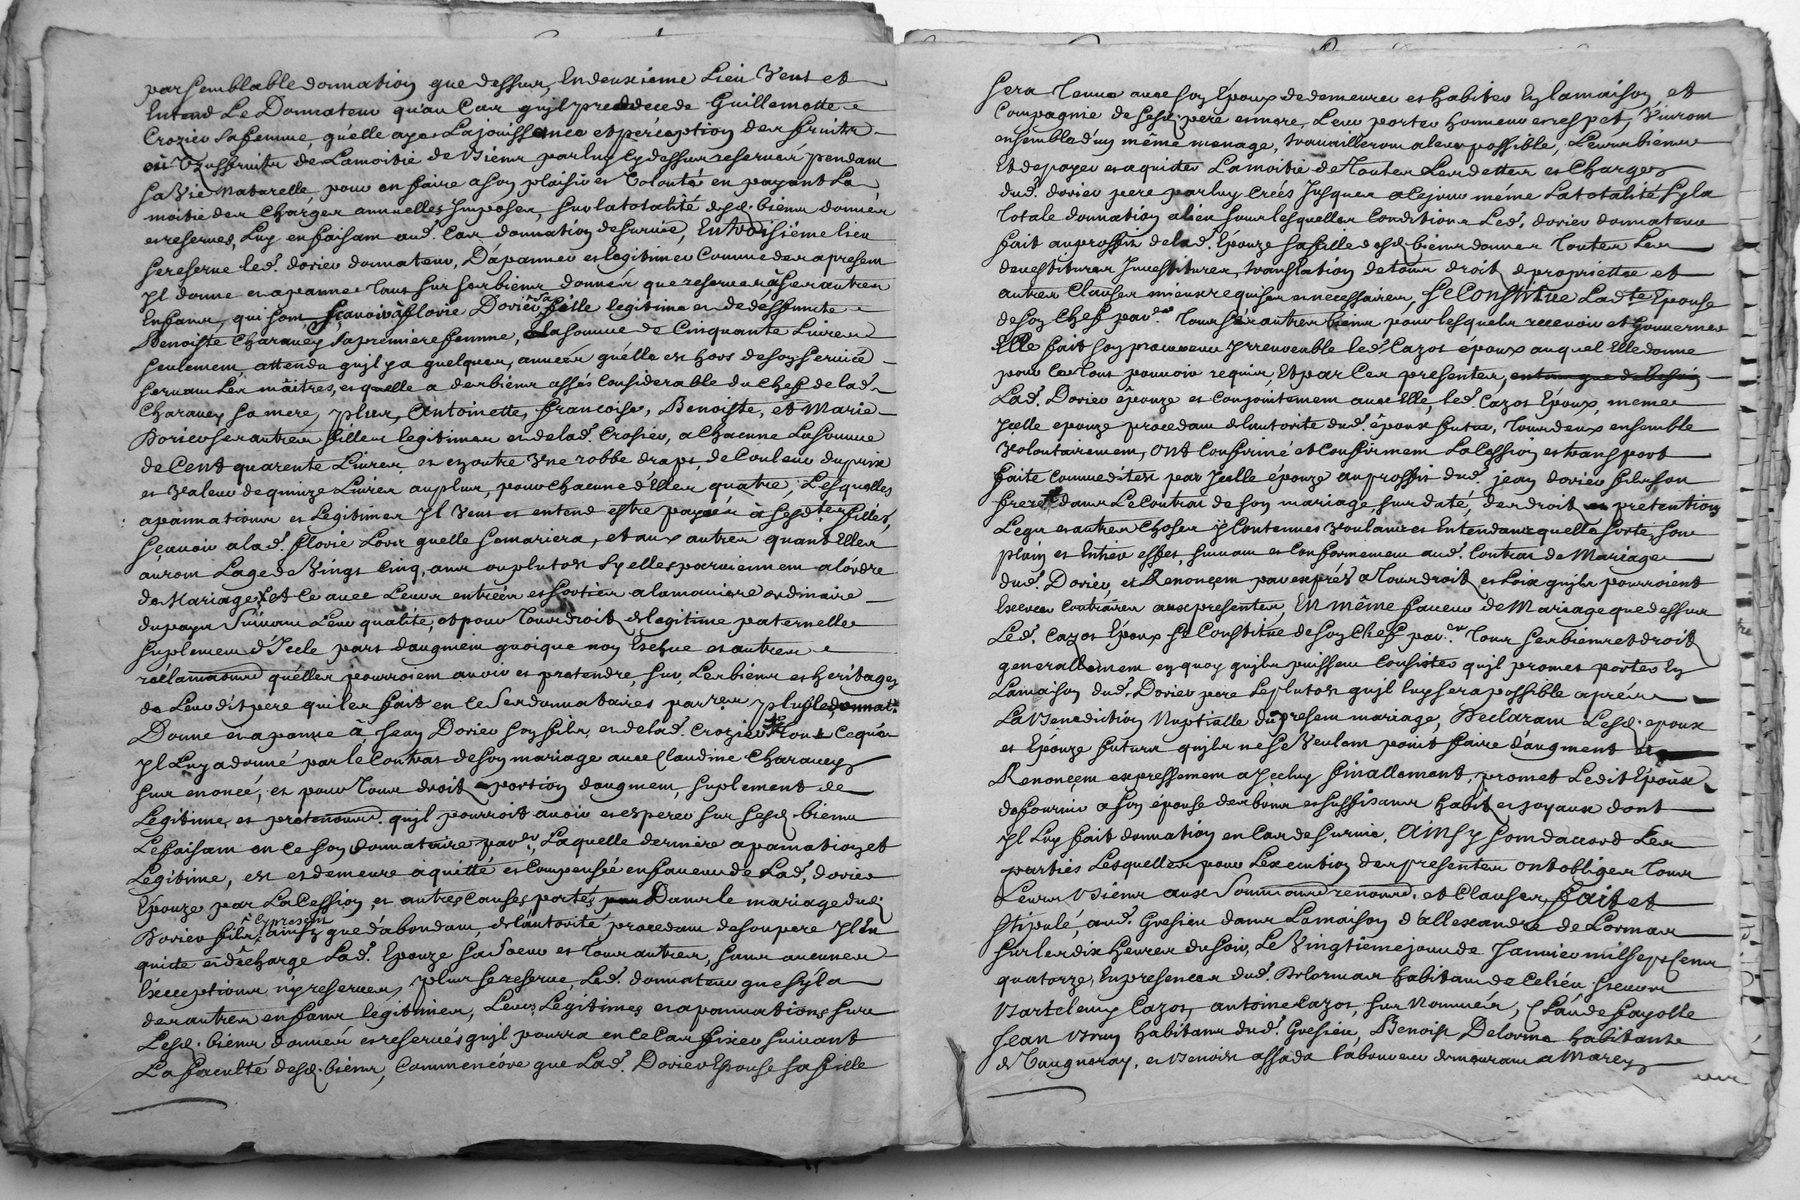 par semblable donnation que dessus, En deuxieme Lieu Veut et
Entend Le Donnateur qu'au Cas quil predecede Guillemette
Crozier sa femme, quelle aye La jouissance et perception des fruits
où Usufruits de La moitié de Biens par luy Cy dessus reservés pendant
sa Vie Naturelle, pour en faire a son plaisir et Volonté en payant La
moitié des Charges annuelles Imposés, sur la totalité desd. biens donnés
et reservés, Luy en faisant aud. Cas donnation de survie, En troisième lieu
se reserve led. dorier donnateur, D'apanner et legitimer Comme des apresent
Il donne et apanne tant sur ses biens donnés que reservés, à ses autres
Enfans, qui sont, sçavoir à florie Dorier sa fille legitime et de deffunte
Benoiste Charavey sa premiere femme, La somme de Cinquante Livres
seulement, attendu quil y a quelques, années quelle est hors de son service
servant Les maitres, et quelle a des biens assés Considerable du Chef de lad.
Charavey sa mere, plus, Antoinette, francoise, Benoiste, et Marie
Dorier ses autres filles legitimes et de lad. Crosier, a Chacune La somme
de Cent quarente Livres et en outre Vne robbe draps, de Couleur du prix
et Valeur de quinze Livres au plus, pour Chacune d'Elles quatre, Lesquelles
apannations et Legitimes Il Veut et entend estre payés à sesd.tes filles,
sçavoir a lad. florie Lors quelle se mariera, et aux autres quant Elles
auront Lage de Vingt Cinq, ans ou plutost sy elles parviennent a lordre
de Mariage, et Ce avec Leurs entrées et sorties a la maniere ordinaire
du pays suivant Leur qualité, et pour tous droits de legitime paternelle
suplement d'Icelle part daugment quoique non Eschue et autres
réclamations quelles pourroient avoir et pretendre, sur, Les biens et héritages
de Leur dit pere qui les fait en Ce ses donnataires
Donne et apanne à Jean Dorier son fils, et de lad. Crozier tout Cequ'a
Il Luy a donné par le Contrat de son mariage avec Claudine Charavey
sus enoncé, et pour tous droits portion daugment, suplement de
Legitime, et prétentions quil pourroit avoir et esperer sur sesd. biens
Le faisant en Ce son donnataire Laquelle derniere apannation et
Legitime, est et demeure aquitté et Compensée en faveur de Lad. dorier
Epouze par La Cession, et autres Causes portés Dans le mariage dud.
Dorier fils, à Cy present ainsy que d'abondant, de l'autorité procedant de son pere Il En
quitte et décharge Lad. Epouze sa soeur et tous autres, sans aucunes
Exceptions ny reserves, plus se reserve, Led. donnateur que sy la
des autres enfans legitimes, Leurs Legitimes et apannations sur
Lesd. biens donnés et reservés quil pourra en Ce Cas fixer suivant
La faculté desd. biens, Commencore que Lad. Dorier Epouse sa fille
sera Tenue avec son Epoux de demeurer et habiter En la maison et
Compagnie de sesd. pere et mere, Leur porter honneur et respet, Vivront
ensemble d'un même menage, travailleront a leur possible, Leurs biens
Et de payer et aquiter La moitié de Toutes Les dettes et Charges
dud. dorier pere par luy Créés Jusques a Cejour même La totalité sy la
Totale donnation a lieu sous lesquelles Conditions Led. dorier donnateur
fait au proffit de lad. Epouze sa fille desd. biens donnés Toutes Les
devestitures Investitures, translation de tous droits de proprietté et
autres Clauses mieux requises et necessaires, Se Constitue Ladte Epouse
de son Chef Tous ses autres biens pour lesquels recevoir et gouverner
Elle fait son procureur Irrevocable led. Cazot époux auquel Elle donne
pour Ce tous pouvoir requis, Et par Ces presentes,
Lad. Dorier épouze et Conjointement avec Elle, led. Cazot Epoux, meme
Icelle epouze procedant de l'autorité dud. époux futur, Tous deux ensemble
Volontairement, ont Confirmé et Confirment La Cession et transport
faite Comme dit est par Icelle épouze au proffit dud. jean dorier fils son
frere dans Le Contrat de son mariage, sus daté, des droits et pretentions
Legs et autres Choses y Contenues Voulant et Entendant quelle sorte, son
plain et Entier effet, suivant et Conformement aud. Contrat de Mariage
dud. Dorier, et Renonçent par exprés a Tous droits et Loix quils pourroient
Exercer Contraires aux presentes, En même faveur de Mariage que dessus
Led. Cazot Epoux se Constitue de son Chef Tous ses biens et droits
generallement en quoy quils puissent Consister quil promet porter En
La maison dud. Dorier pere Leplutost quil luy sera possible aprés
La Benediction Nuptialle du present mariage, Declarant Lesd. epoux
et Epouze futurs quils ne se Veulent point faire d'augment
Renonçent expressement a Iceluy finallement, promet Ledit Epoux
de fournir a son épouse des bons et suffisans habits et joyaux dont
Il Luy fait donnation en Cas de survie, Ainsy sont daccord Les
parties Lesquelles pour L'execution des presentes ont obligés Tous
Leurs Biens aux Soumissions renonc. et Clauses, fait et
stipulé, aud. Gresieu dans La maison d'allexandre de Lormas
sur les dix heures du soir, Le Vingtieme jour de Janvier mil sept Cents
quatorze, En presence dud. Delormas habitant de Celieu, sieurs
Bartelemy Cazot, antoine Cazot, sus Nommés, Claude fayolle
Jean Brun habitans dud. Gresieu, Benoist Delorme habitante
de Vaugneray, et Benoist assada laboureur demeurant a Marcy